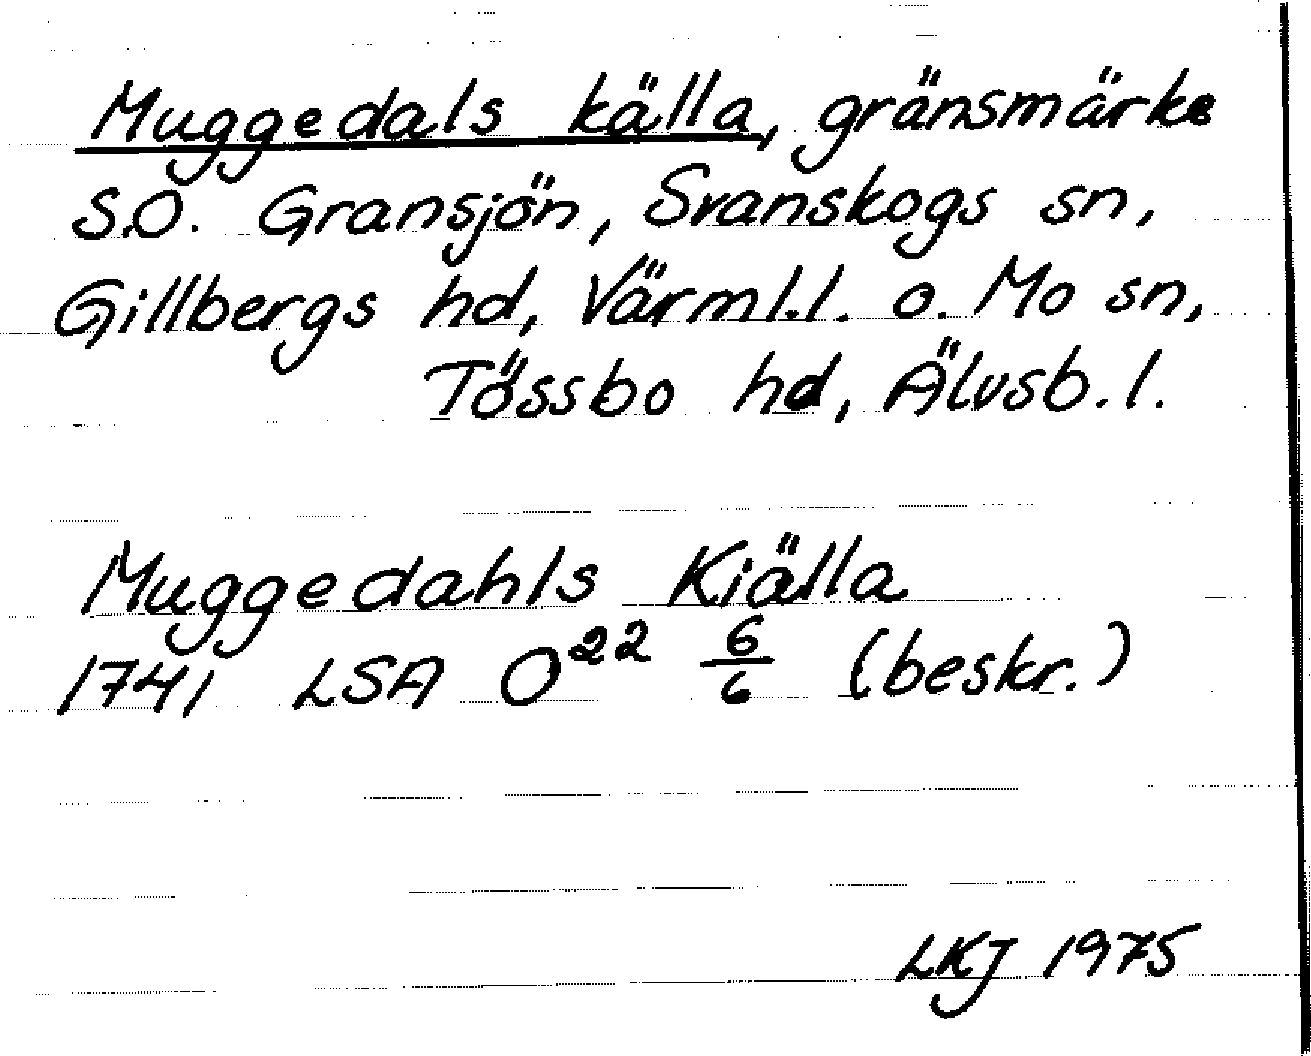 Muggedals källa, gränsmärke
S.O. Gransjön, Svanskogs sn,
Gillbergs hd, Värml.l. o. Mo sn,
Tössbo hd, Älvsb.l.
Muggedahls Kiälla
1741 LSA O²² 6/6 (beskr.)
LKJ 1975